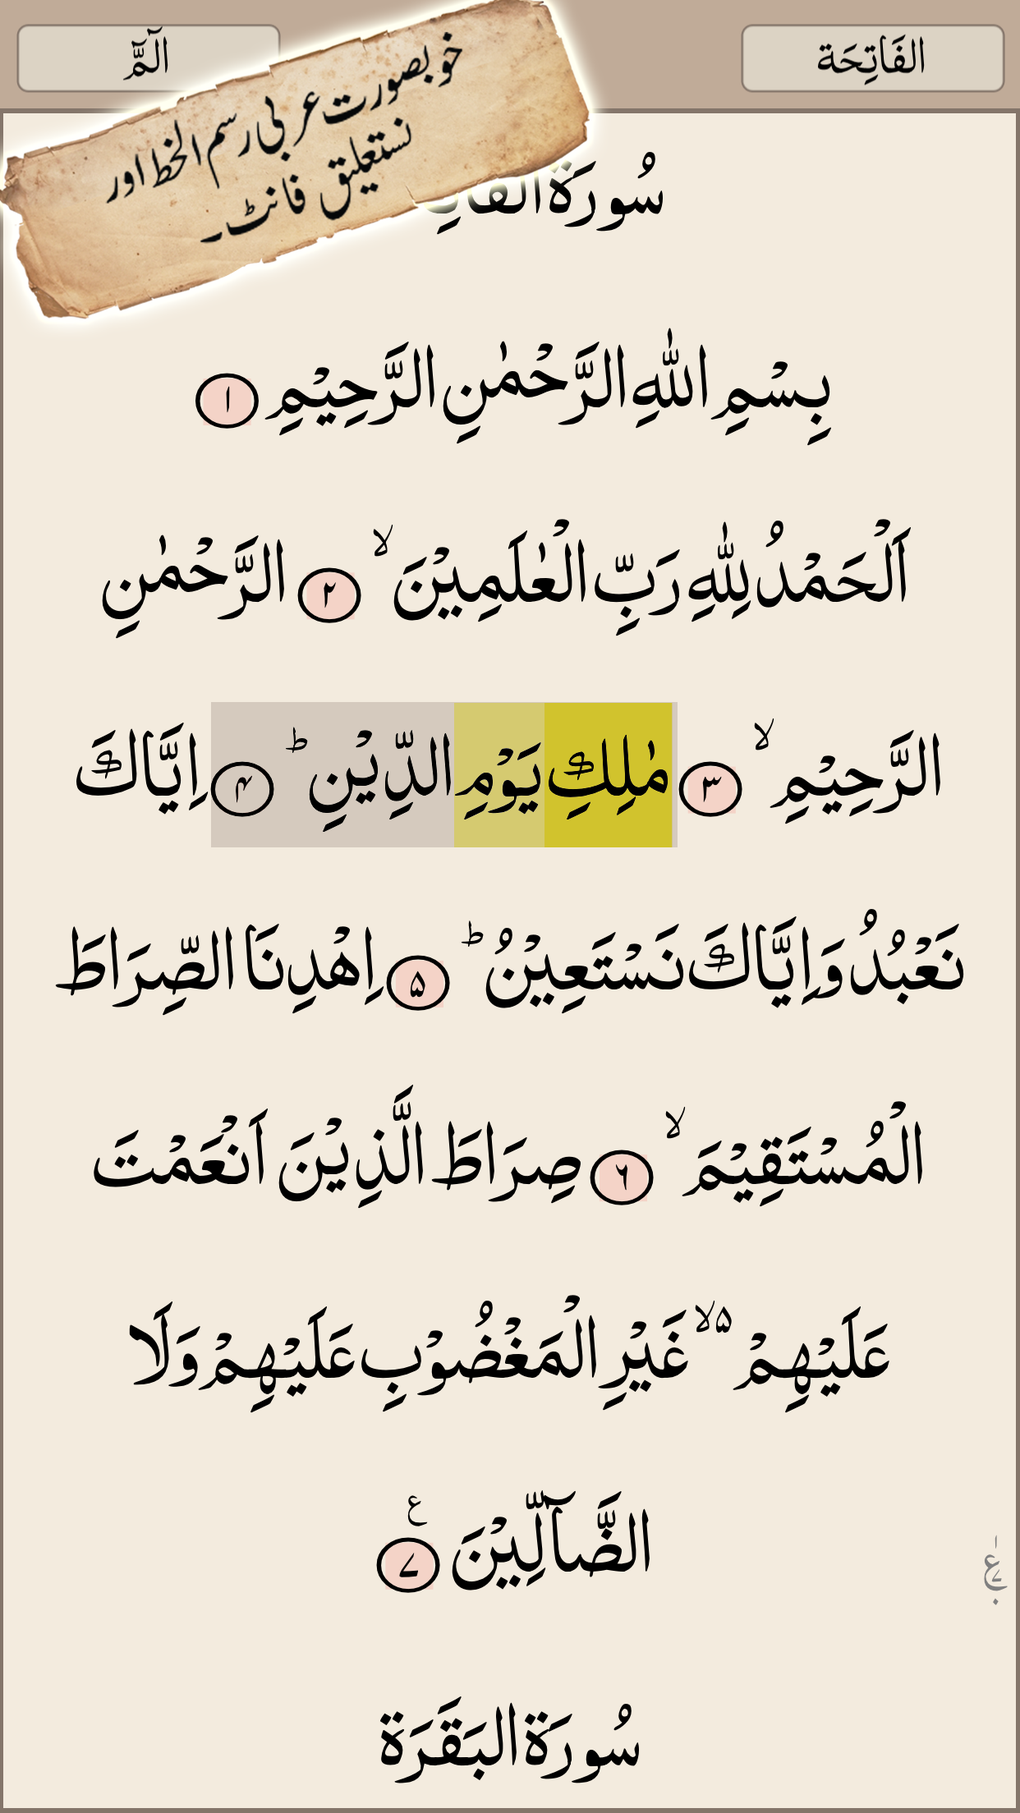 الفَاتِحَة
الٓمّٓ
خوبصورت عربی رسم الخط اور
نستعلیق فانٹ۔
سُورَة
بِسْمِ اللّٰهِ الرَّحْمٰنِ الرَّحِيْمِ ١
اَلْحَمْدُ لِلّٰهِ رَبِّ الْعٰلَمِيْنَ ۙ ٢ الرَّحْمٰنِ
الرَّحِيْمِ ۙ ٣ مٰلِكِ يَوْمِ الدِّيْنِ ؕ ۴ اِيَّاكَ
نَعْبُدُ وَاِيَّاكَ نَسْتَعِيْنُ ؕ ۵ اِهْدِنَا الصِّرَاطَ
الْمُسْتَقِيْمَ ۙ ٦ صِرَاطَ الَّذِيْنَ اَنْعَمْتَ
عَلَيْهِمْ ۵ۙ غَيْرِ الْمَغْضُوْبِ عَلَيْهِمْ وَلَا
الضَّآلِّيْنَ ع ٧
سُورَة البَقَرَة